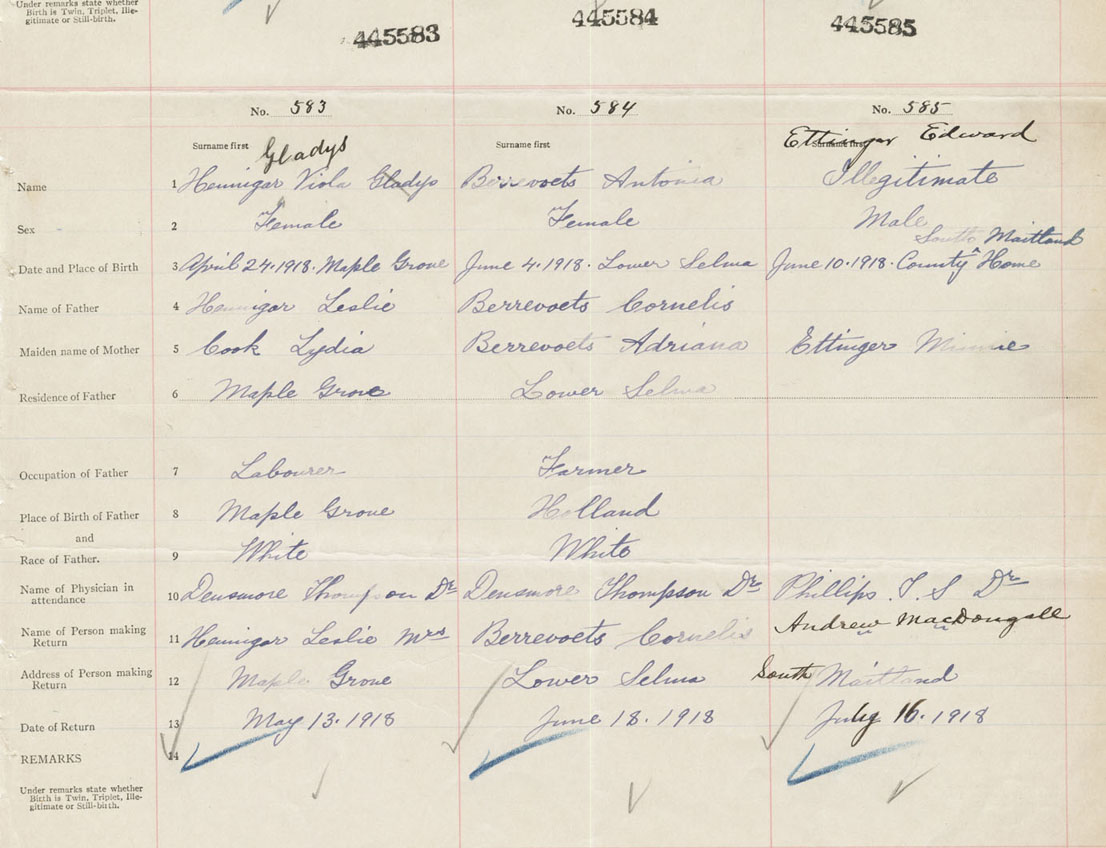 Under remarks state whether
Birth is Twin, Triplet, Ille-
gitimate or Still-birth.
445583 445584 445585
No. 583 No. 584 No. 585
Surname first Gladys Surname first Surname first Ettinger Edward
Name 1 Hennigar Viola Gladys Berrevoets Antonia Illegitimate
Sex 2 Female Female Male
South Maitland
Date and Place of Birth 3 April 24.1918. Maple Grove June 4.1918. Lower Selma June 10.1918. County Home
Name of Father 4 Hennigar Leslie Berrevoets Cornelis
Maiden name of Mother 5 Cook Lydia Berrevoets Adriana Ettinger Minnie
Residence of Father 6 Maple Grove Lower Selma
Occupation of Father 7 Labourer Farmer
Place of Birth of Father 8 Maple Grove Holland
and
Race of Father. 9 White White
Name of Physician in
attendance 10 Densmore Thompson Dr Densmore Thompson Dr Phillips T. S Dr
Name of Person making
Return 11 Hennigar Leslie Mrs Berrevoets Cornelis Andrew MacDougall
Address of Person making
Return 12 Maple Grove Lower Selma South Maitland
Date of Return 13 May 13.1918 June 18.1918 July 16.1918
REMARKS 14
Under remarks state whether
Birth is Twin, Triplet, Ille-
gitimate or Still-birth.